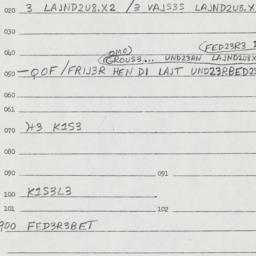 020 3 LAJND2U8.X2 /3 VAJS3S LAJND2U8.X
030
040 (FED23R3
(GROUS3... UND23RN LAJND2U8X
050 —QOF/FRIJ3R HEN DI LAJT UND23RBED23
060
061
070 )+3 K1S3
080
090 091
100 K1S3L3
101 102
900 FED3R3BET